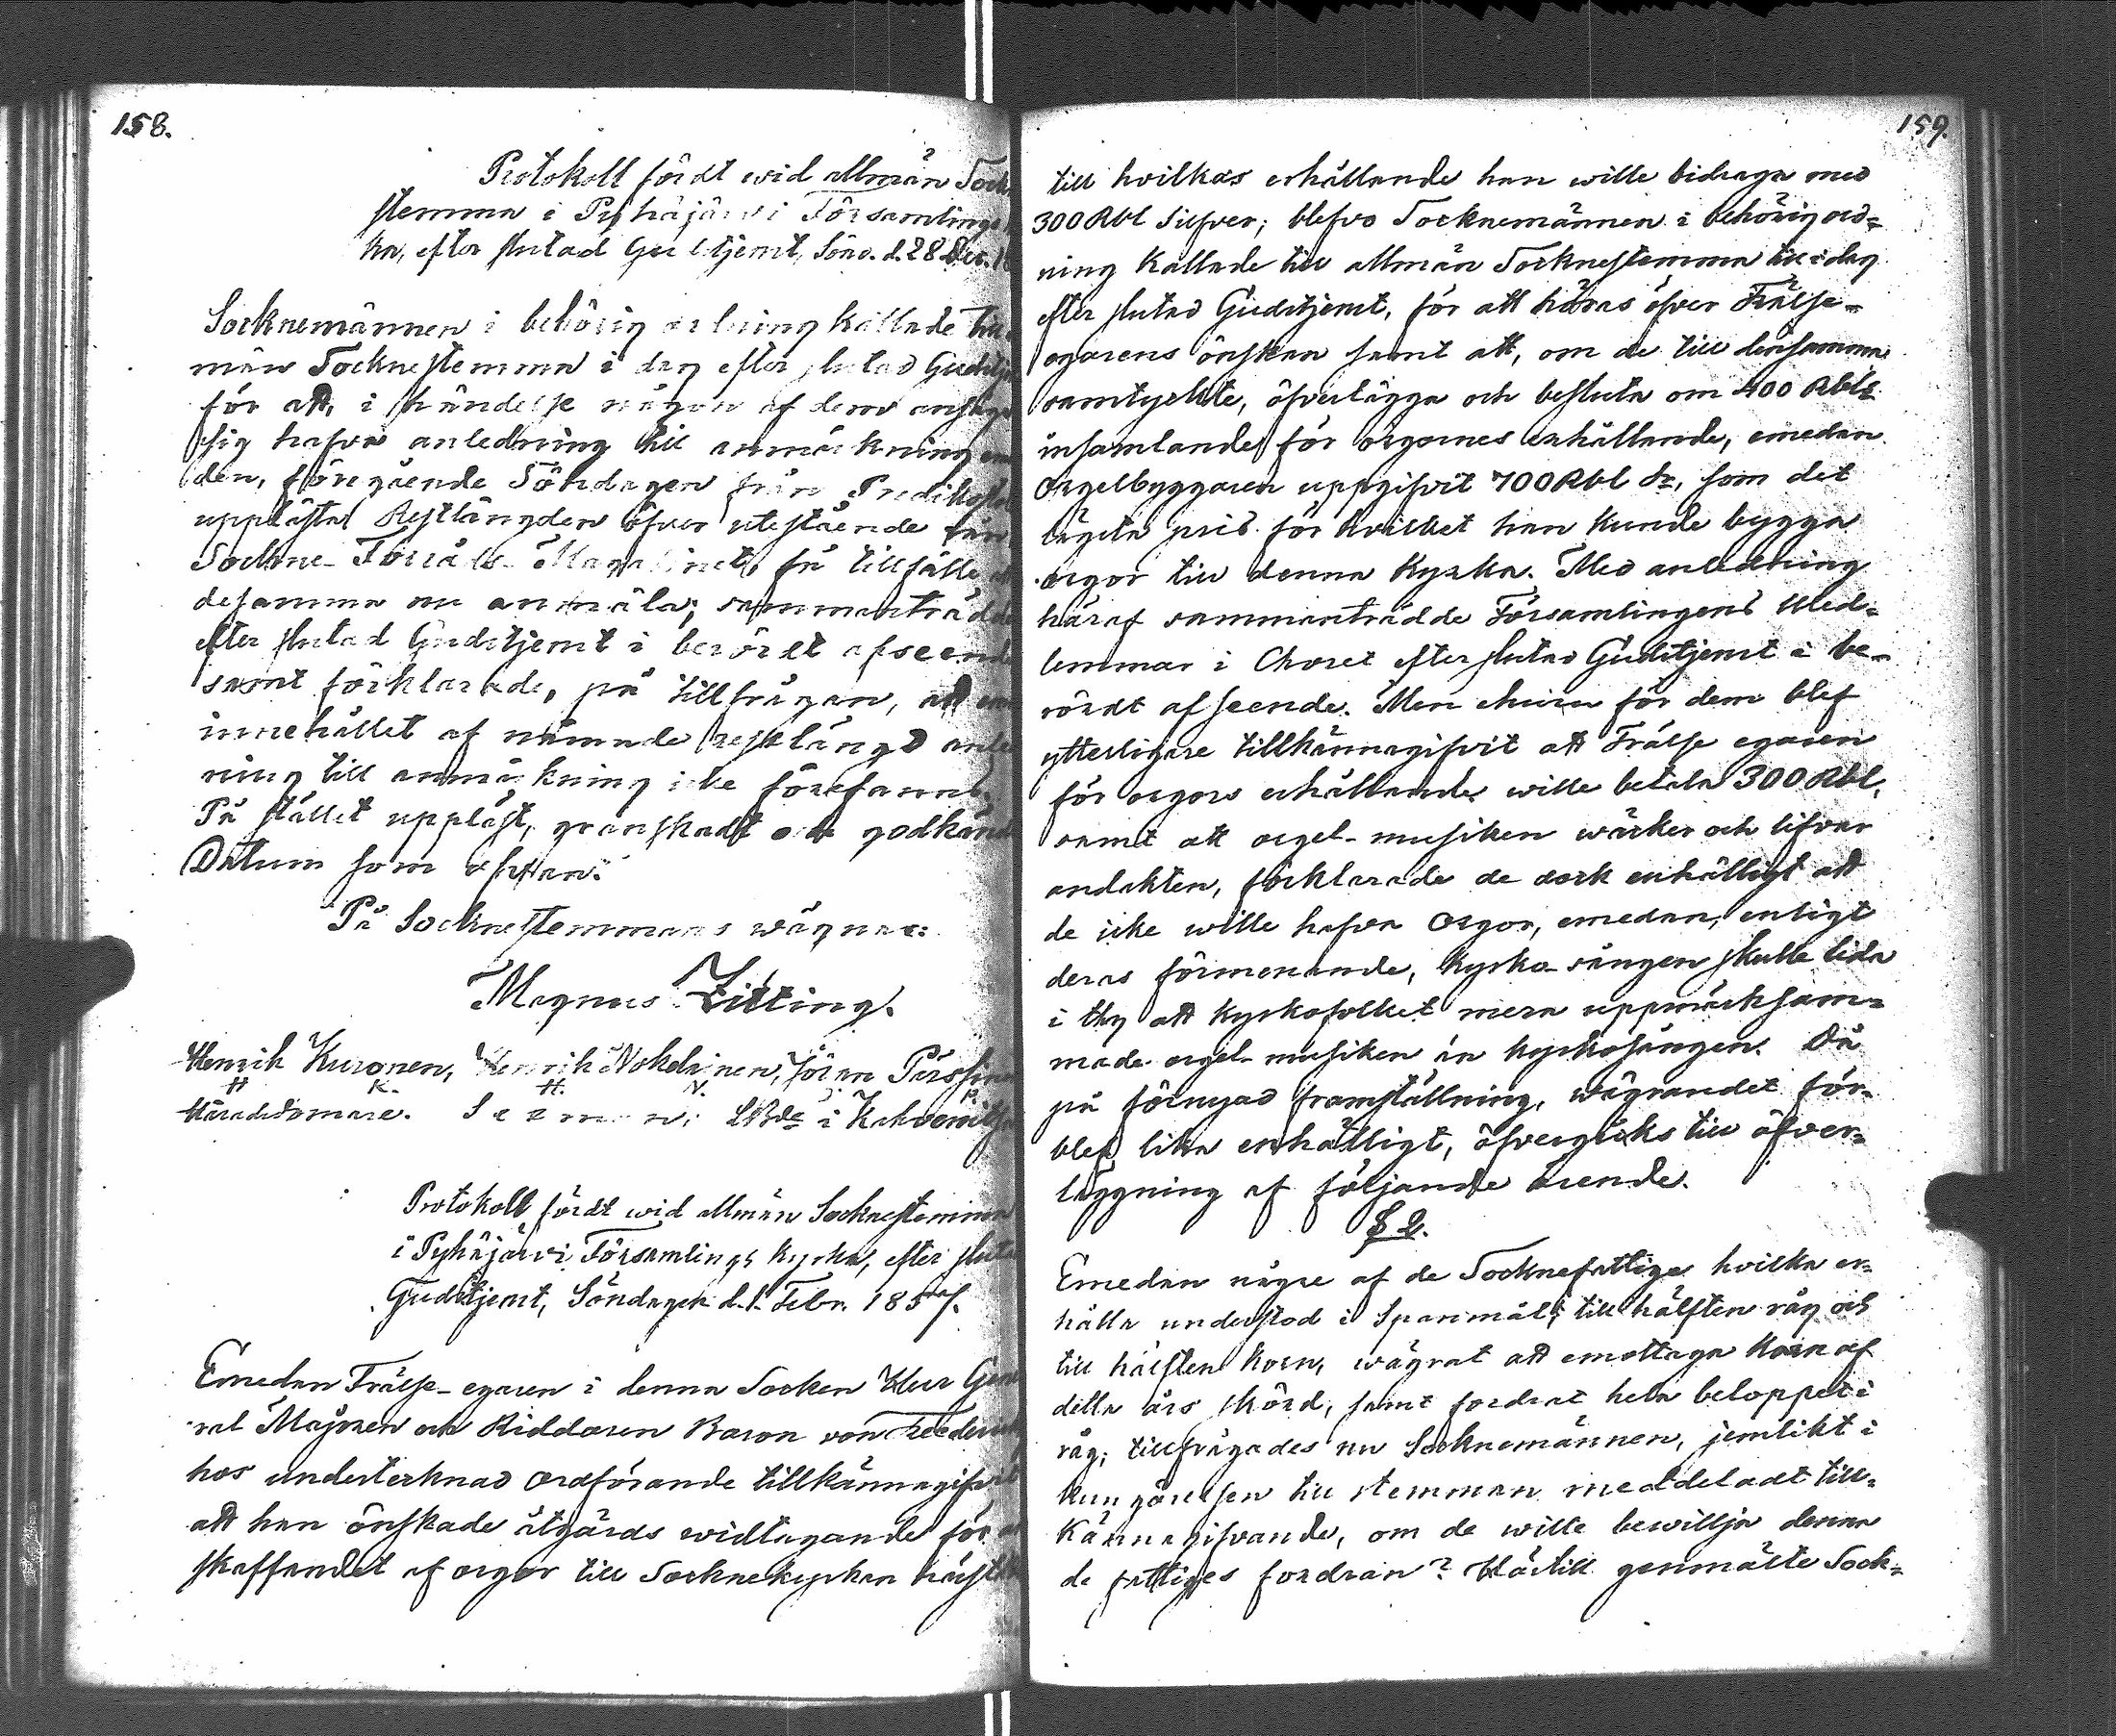 158.
Protokoll fördt wid allmän Sock
stemma i Pyhäjärvi Församlings
ka, efter slutad Gudstjenst, Sönd. d. 28 Dec. 18
Socknemännen i behörig ordning kallade till
män Socknestemma i dag efter slutad Gudstj
för att, i händelse någon af dem ansåge
sig hafva anledning till anmärkning em
den, föregående Söndagen från Predikst
upplästa Restlängden öfver utestående lån
Sockne-Förråds-Magasinet, få tillfälle
desamma nu anmäla; sammanträdde
efter slutad Gudstjenst i berördt afseende
samt förklarade, på tillfrågan, att em
innehållet af nämnde restlängd anled
ning till anmärkning icke förefanns.
På stället uppläst, granskadt och godkändt
Datum som ofvan.
På Socknestemmans wägnar:
Magnus Zitting.
Henrik Kuronen, Henrik Nokelainen, Jöran Pärssin
H K. H. N. J. P.
Häradsdomare. Sexmän; LBde i Kahvenitsa
Protokoll, fördt wid allmän Socknestemma
i Pyhäjärvi Församlings kyrka, efter slutad
Gudstjenst, Söndagen d. 1. Febr. 1857.
Emedan Frälse-egaren i denna Socken Herr Gene
ral Majoren och Riddaren Baron von Freederick
hos undertecknad ordförande tillkännagifvit
att han önskade åtgärds widtagande för
skaffandet af orgor till Socknekyrkan härst
159.
till hvilkas erhållande han wille bidraga med
300 Rbl Silfver; blefvo Socknemännen i behörig ord=
ning kallade till allmän Socknestemma till i dag
efter slutad Gudstjenst, för att höras öfver Frälse-
egarens önskan samt att, om de till densamma
samtyckte, öfverlägga och besluta om 400 Rbls
insamlande för orgornes erhållande, emedan
Orgelbyggaren uppgifvit 700 Rbl Sr, som det
lägsta pris för hvilket han kunde bygga
orgor till denna Kyrka. Med anledning
häraf sammanträdde Församlingens Med=
lemmar i Choret efter slutad Gudstjenst i be-
rördt afseende. Men ehuru för dem blef
ytterligare tillkännagifvit att Frälse egaren
för orgors erhållande wille betala 300 Rbl,
samt att orgel-musiken wäcker och lifvar
andakten, förklarade de dock enhälligt att
de icke wille hafva Orgor, emedan, enligt
deras förmenande, kyrko-sången skulle lida
i thy att kyrkofolket mera uppmärksam=
made orgel-musiken än kyrkosången. Då
på förnyad framställning, wägrandet för-
blef lika enhälligt, öfvergicks till öfver=
läggning af följande ärende.
§ 2.
Emedan några af de Socknefattige hvilka er=
hålla understöd i Spanmål; till hälften råg och
till hälften korn, wägrat att emottaga korn af
detta års skörd, samt fordrat hela beloppet i
råg; tillfrågades nu Socknemännen, jemlikt i
kungörelsen till stemman meddeladt till=
kännagifvande, om de wille bewillja denna
de fattiges fordran? Härtill genmälte Sock=